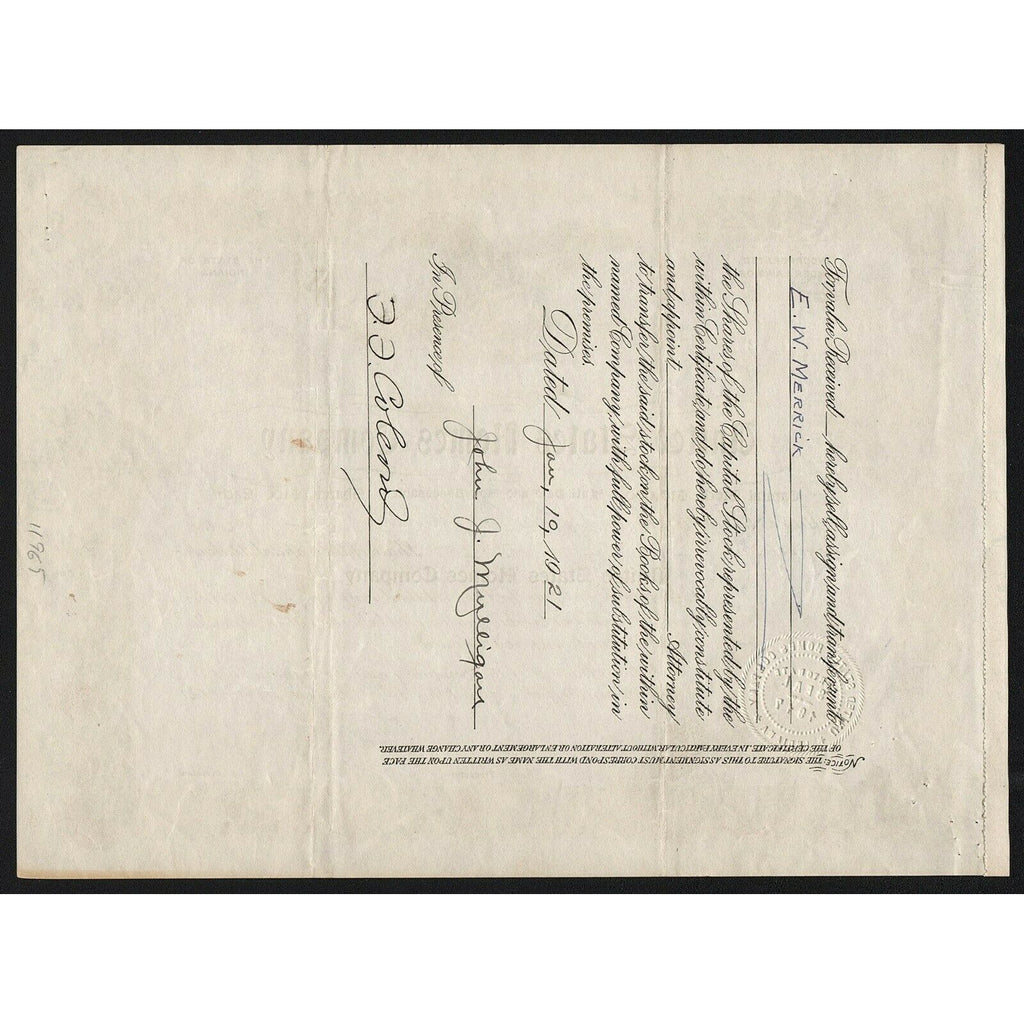 For value Received hereby sell, assign and transfer unto
E. W. MERRICK
the Shares of the Capital Stock represented by the
within Certificate, and do hereby irrevocably constitute
and appoint Attorney
to transfer the said stock on the Books of the within
named Company, with full power of substitution in
the premises.
Dated Jan, 19, 1921
John J. Mulligan
In Presence of
NOTICE: THE SIGNATURE TO THIS ASSIGNMENT MUST CORRESPOND WITH THE NAME AS WRITTEN UPON THE FACE
OF THE CERTIFICATE, IN EVERY PARTICULAR, WITHOUT ALTERATION OR ENLARGEMENT OR ANY CHANGE WHATEVER.
11965